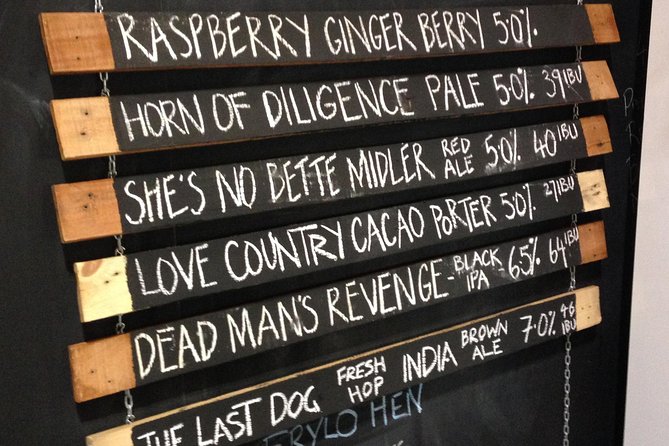 RASPBERRY GINGER BERRY 5.0%
HORN OF DILIGENCE PALE 5.0% 39 IBU
SHE'S NO BETTE MIDLER RED ALE 5.0% 40 IBU
LOVE COUNTRY CACAO PORTER 5.0% 27 IBU
DEAD MAN'S REVENGE - BLACK IPA 65% 64 IBU
THE LAST DOG FRESH HOP INDIA BROWN ALE 7.0% 46 IBU
HEN